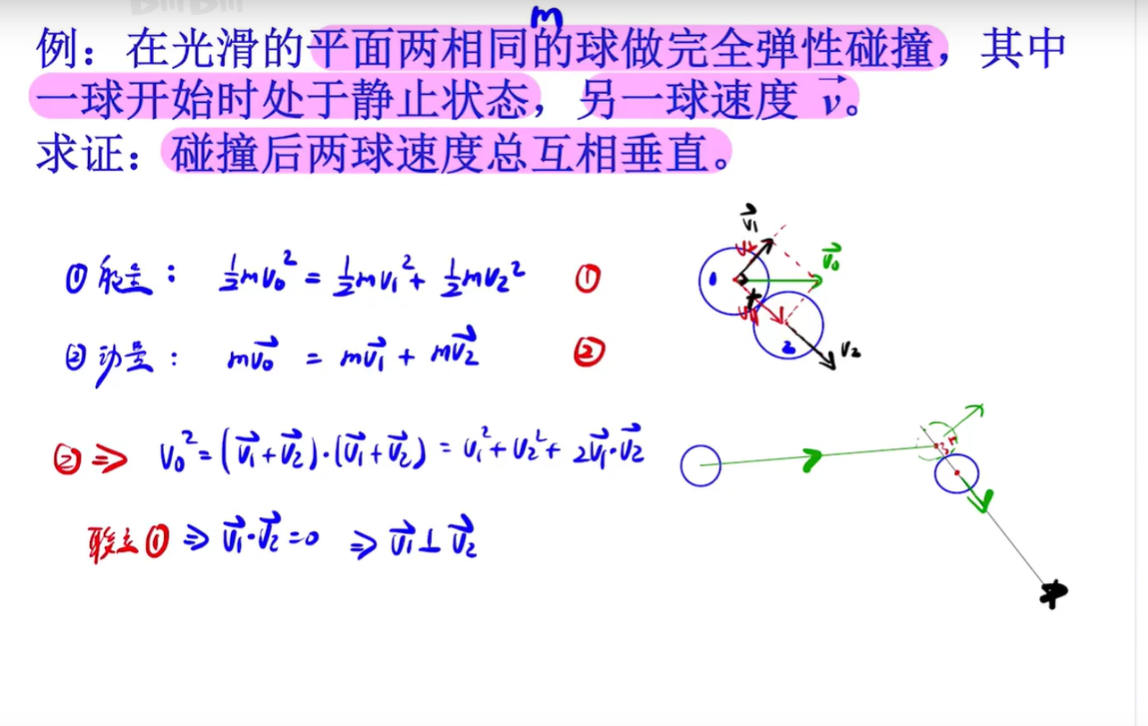 m
例：在光滑的平面两相同的球做完全弹性碰撞，其中
一球开始时处于静止状态，另一球速度 v⃗。
求证：碰撞后两球速度总互相垂直。
① 能量： ½mv₀² = ½mv₁² + ½mv₂² ①
② 动量： mv⃗₀ = mv⃗₁ + mv⃗₂ ②
② ⇒ v₀² = (v⃗₁+v⃗₂)·(v⃗₁+v⃗₂) = v₁²+v₂²+ 2v⃗₁·v⃗₂
联立① ⇒ v⃗₁·v⃗₂=0 ⇒ v⃗₁⊥v⃗₂
v⃗₁
v⃗₀
1
2
v₂